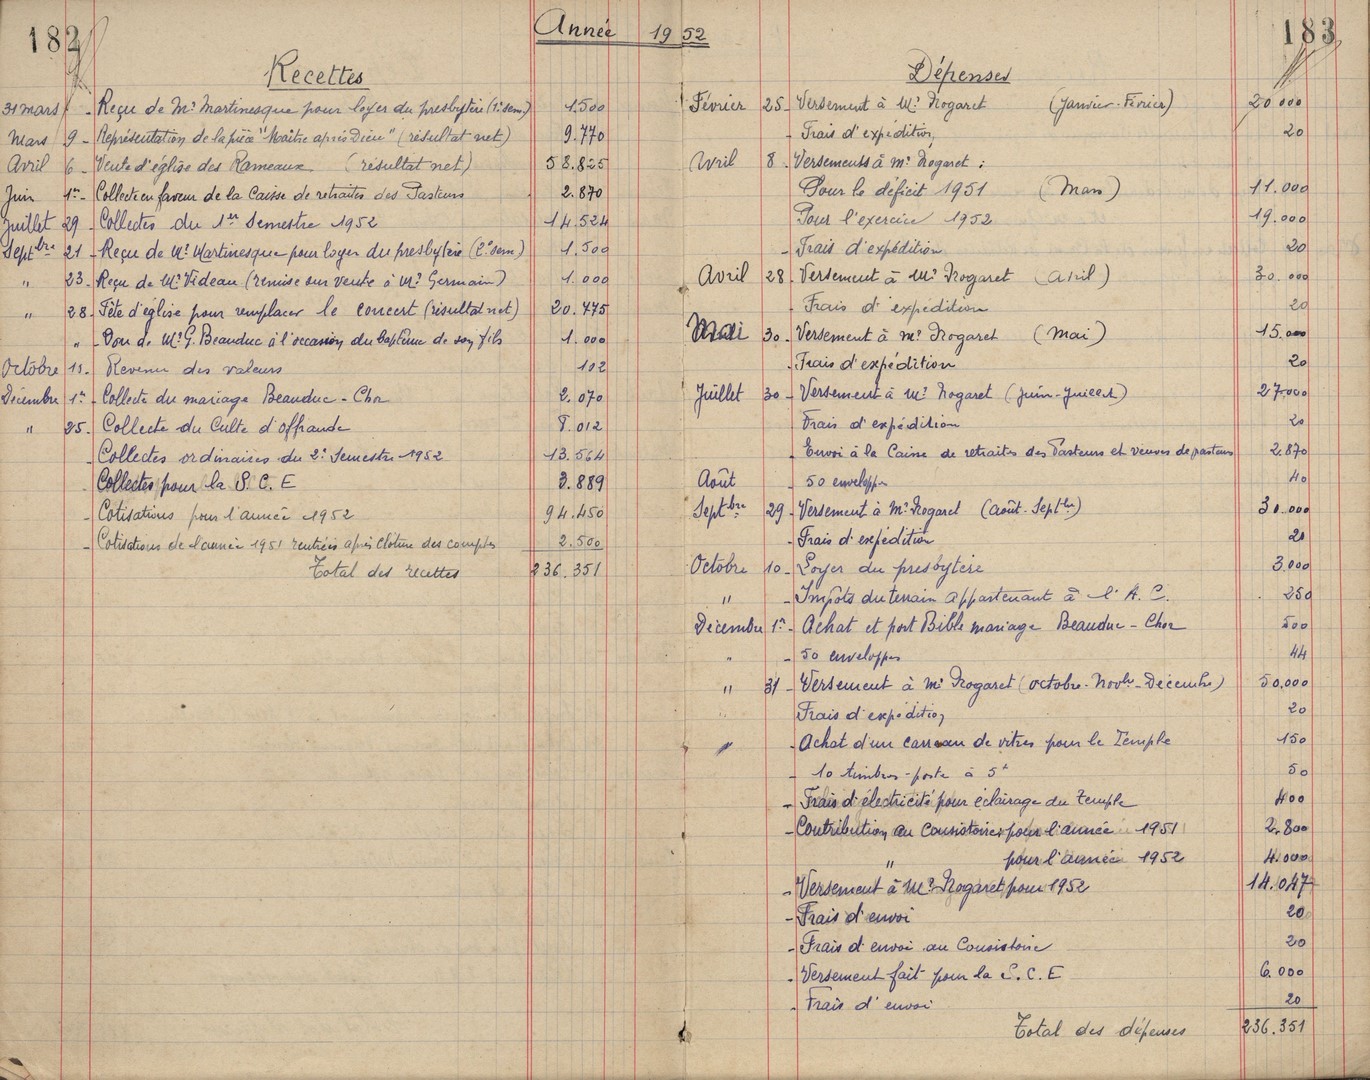 182
Année 1952
183
Recettes
31 mars - Reçu de Mr Martinesque pour loyer du presbytère (1er sem) 1.500
Mars 9 - Représentation de la pièce "Maître après Dieu" (résultat net) 9.770
Avril 6 - Vente d'église des Rameaux (résultat net) 58.825
Juin 1er - Collecte en faveur de la Caisse de retraites des Pasteurs 2.870
Juillet 29 - Collectes du 1er Semestre 1952 14.524
Septbre 21 - Reçu de Mr Martinesque pour loyer du presbytère (2e sem) 1.500
" 23 - Reçu de Mr Videau (remise sur vente à Mr Germain) 1.000
" 28 - Fête d'église pour remplacer le concert (résultat net) 20.775
" - Don de Mr G. Beauduc à l'occasion du baptême de son fils 1.000
Octobre 15 - Revenu des valeurs 102
Décembre 1er - Collecte du mariage Beauduc - Chor 2.070
" 25 - Collecte du Culte d'offrande 8.012
- Collectes ordinaires du 2e Semestre 1952 13.564
- Collectes pour la S.C.E 3.889
- Cotisations pour l'année 1952 94.450
- Cotisations de l'année 1951 rentrées après clôture des comptes 2.500
Total des recettes 236.351
Dépenses
Février 25 - Versement à Mr Nogaret (Janvier-Février) 20 000
- Frais d'expédition 20
Avril 8 - Versements à Mr Nogaret :
Pour le déficit 1951 (Mars) 11.000
Pour l'exercice 1952 19.000
- Frais d'expédition 20
Avril 28 - Versement à Mr Nogaret (Avril) 30.000
- Frais d'expédition 20
Mai 30 - Versement à Mr Nogaret (Mai) 15.000
- Frais d'expédition 20
Juillet 30 - Versement à Mr Nogaret (Juin-Juillet) 27.000
- Frais d'expédition 20
- Envoi à la Caisse de retraites des Pasteurs et veuves de pasteurs 2.870
Août - 50 enveloppes 40
Septbre 29 - Versement à Mr Nogaret (Août-Septbre) 30.000
- Frais d'expédition 20
Octobre 10 - Loyer du presbytère 3.000
" - Impôts du terrain appartenant à l'A.C. 250
Décembre 1er - Achat et port Bible mariage Beauduc - Chor 500
" - 50 enveloppes 44
" 31 - Versement à Mr Nogaret (octobre-Novbre-Décembre) 50.000
Frais d'expédition 20
" - Achat d'un carreau de vitres pour le Temple 150
- 10 timbres-poste à 5f 50
- Frais d'électricité pour éclairage du Temple 400
- Contribution au Consistoire pour l'année 1951 2.800
" pour l'année 1952 4.000
- Versement à Mr Nogaret pour 1952 14.047
- Frais d'envoi 20
- Frais d'envoi au Consistoire 20
- Versement fait pour la S.C.E 6.000
- Frais d'envoi 20
Total des dépenses 236.351